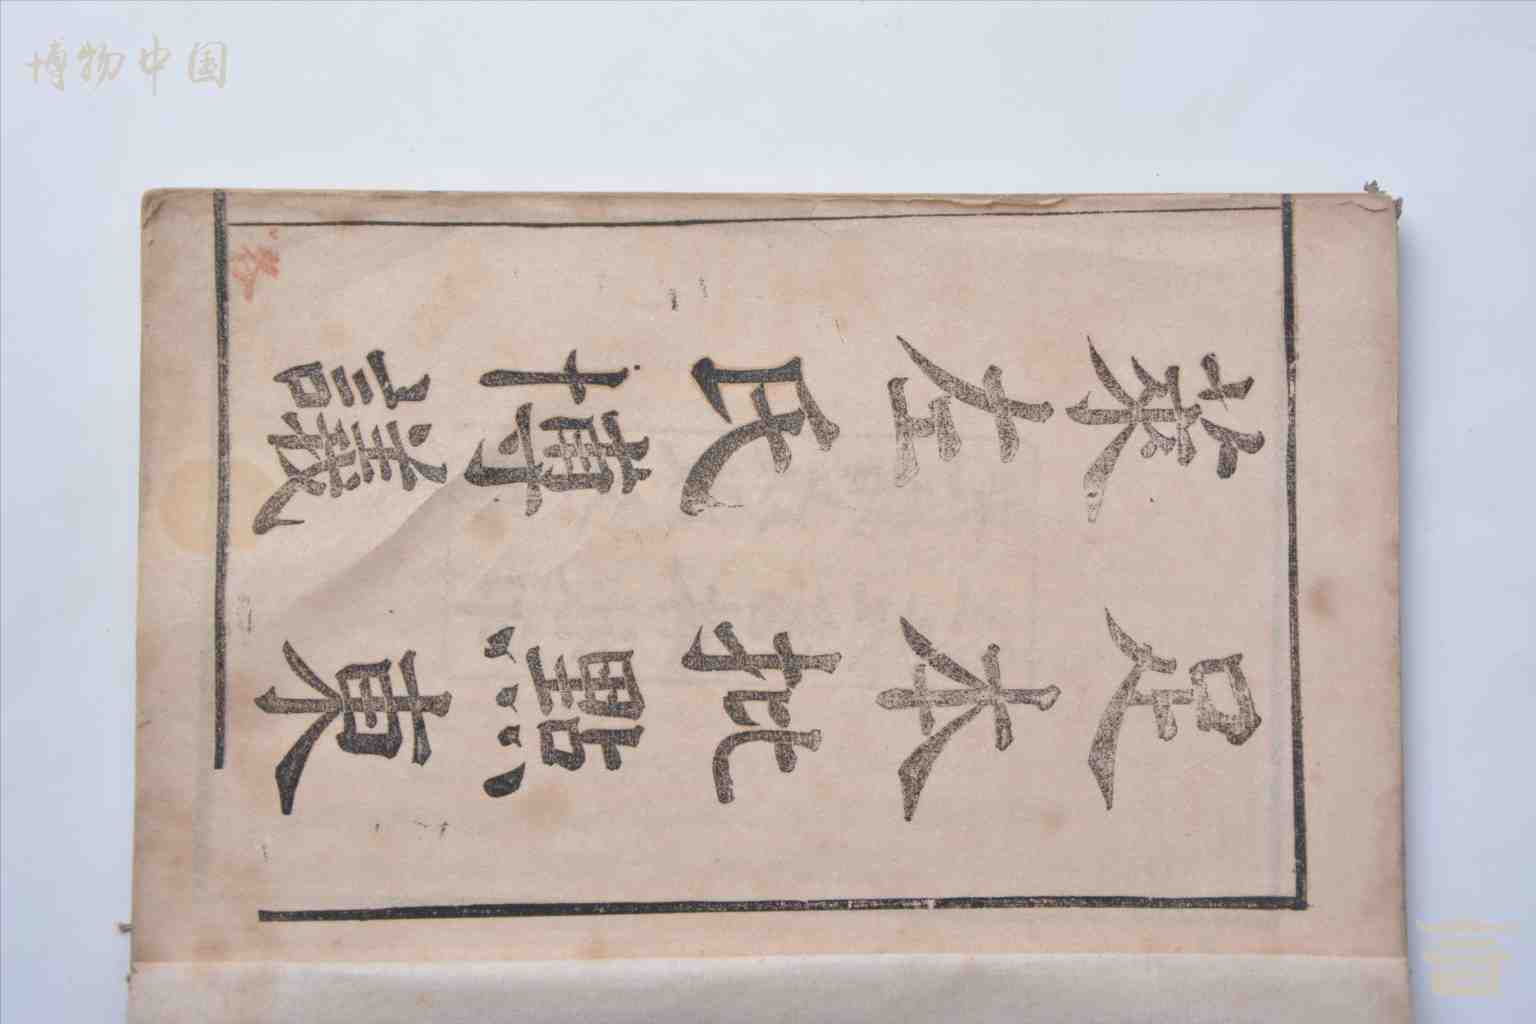 博物中国
足本批點東
萊左氏博議